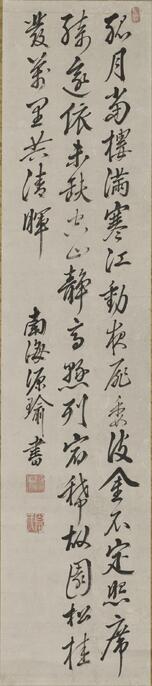 孤月當樓滿寒江動夜扉委波金不定照席
綺逾依未缺空山靜高懸列宿稀故園松桂
發萬里共清暉
南海源瑜書